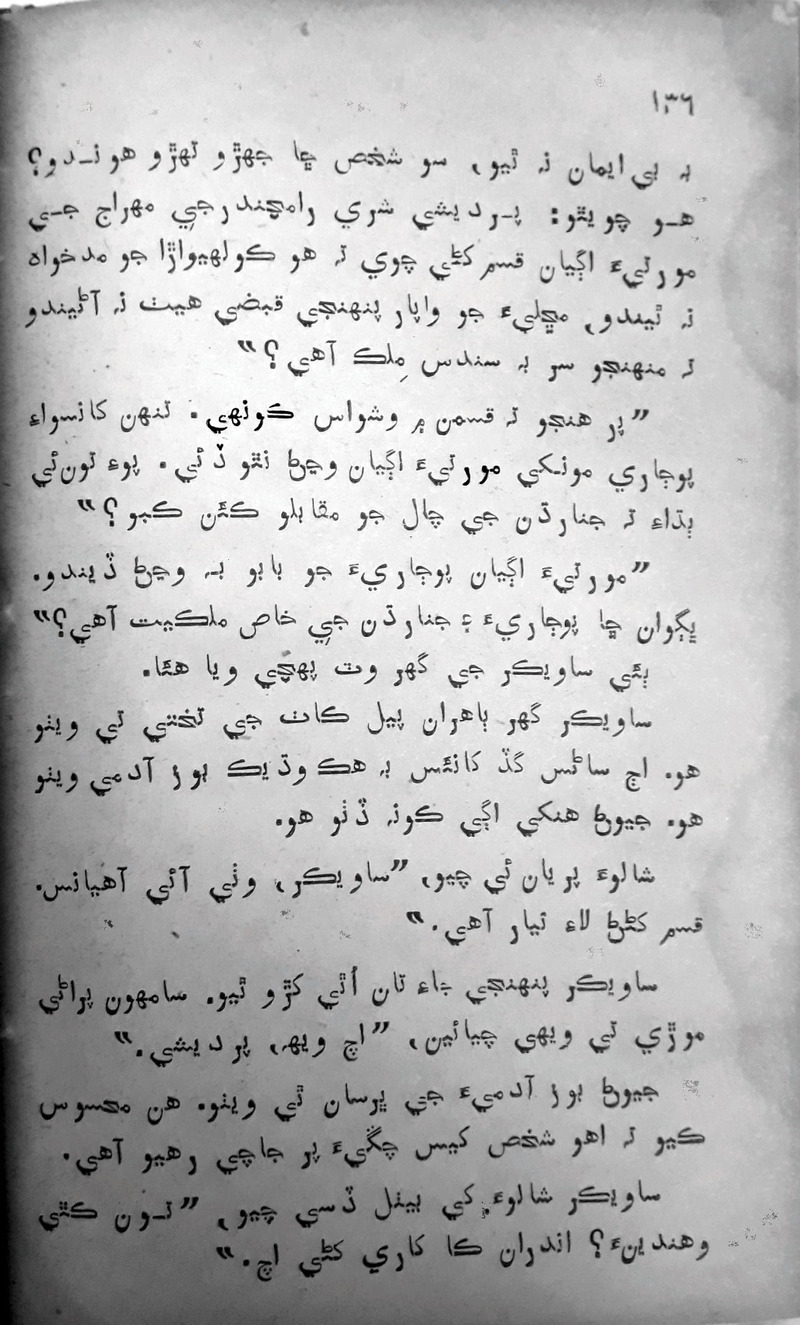 ١٣٦
بہ بي ايمان نہ ٿيو، سو شخص ڇا جهڙو تهڙو هو نـدو؟
هـو چويٿو: پـرديشي شري رامچندرجي مهراج جـي
مورتيءَ اڳيان قسم کڻي چوي تہ هو ڪولهيواڙا جو مدخواه
نہ ٿيندو، مڇليءَ جو واپار پنهنجي قبضي هيٺ نہ آڻيندو
تہ منهنجو سر بہ سندس مِلڪ آهي؟“
”پر هنجو تہ قسمن ۾ وشواس ڪونهي. تنهن کانسواءِ
پوڄاري مونکي مورتيءَ اڳيان وڃڻ نٿو ڏئي. پوءِ تون ئي
ٻڌاءِ تہ جنارڌن جي چال جو مقابلو ڪٿن ڪيو؟“
”مورتيءَ اڳيان پوڄاريءَ جو بابو بہ وڃڻ ڏيندو.
ڀڳوان ڇا پوڄاريءَ ۽ جنارڌن جي خاص ملڪيت آهي؟“
ٻئي ساويڪر جي گهر وٽ پهچي ويا هئا.
ساويڪر گهر ٻاهران پيل کاٽ جي تختي تي ويٺو
هو. اڄ ساڻس گڏ کانئس بہ هڪ وڌيڪ ٻوڙ آدمي ويٺو
هو. جيوڻ هنکي اڳي ڪونہ ڏٺو هو.
شالوءَ پريان ئي چيو، ”ساويڪر، وٺي آئي آهيانس.
قسم کڻڻ لاءِ تيار آهي.“
ساويڪر پنهنجي جاءِ تان اُٿي کڙو ٿيو. سامهون پراڻي
موڙي تي ويهي چيائين، ”اچ ويهہ، پرديشي.“
جيوڻ ٻوڙ آدميءَ جي ڀرسان ٿي ويٺو. هن محسوس
ڪيو تہ اهو شخص کيس چڱيءَ پر جاچي رهيو آهي.
ساويڪر شالوءَ کي بيٺل ڏسي چيو، ”تـون ڪٿي
وهندينءَ؟ اندران ڪا کاري کڻي اچ.“